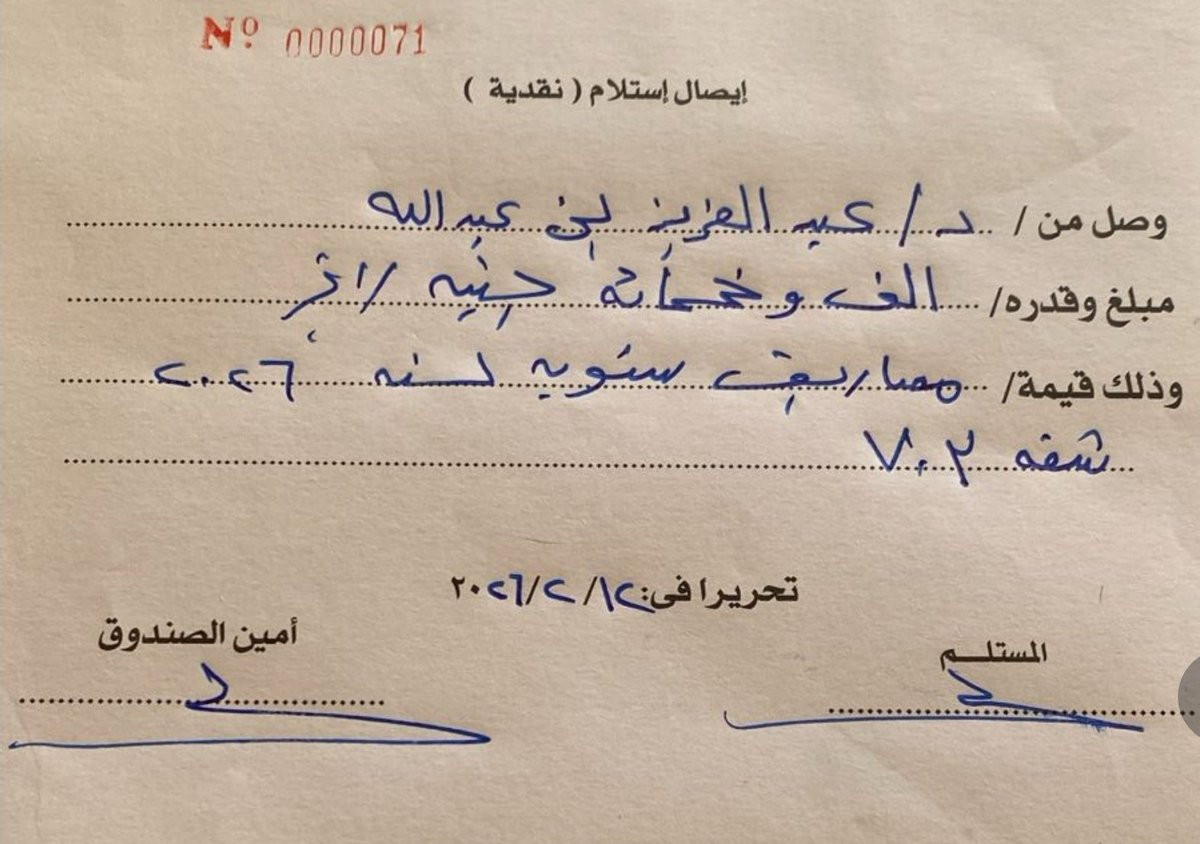 Nº 0000071
إيصال إستلام ( نقدية )
وصل من / د/ عبد العزيز بن عبد الله
مبلغ وقدره/ الف و خمسمائة جنيه /
وذلك قيمة/ مصاريف سنويه لسنه ٢٠٢٦
شقه ٧٠٢
تحريرا فى: ١٢/ ٢/ ٢٠٢٦
أمين الصندوق
المستلم